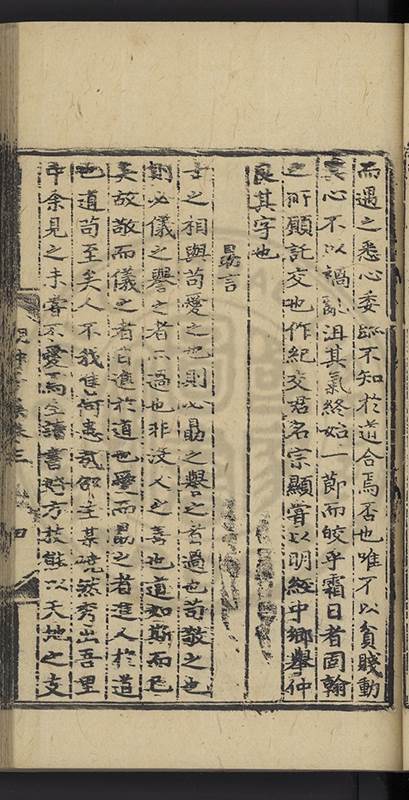 而遇之悉心委誣不知於道合焉否也唯不以貧賤動
其心不以禍亂沮其氣終始一節而皎乎霜日者固翰
之所願託交也作紀交君名宗顯嘗以明經中鄉舉仲
良其字也
勗言
士之相與苟愛之也則必勗之譽之者過也苟敬之也
則必儀之譽之者亦過也非沒人之善也道如斯而已
矣故敬而儀之者自進於道也愛而勗之者進人於道
也道苟至矣人不我進何患哉鄒生某硗然秀出吾里
中余見之未嘗不愛焉生讀書好方技能以天地之支
卷三
四